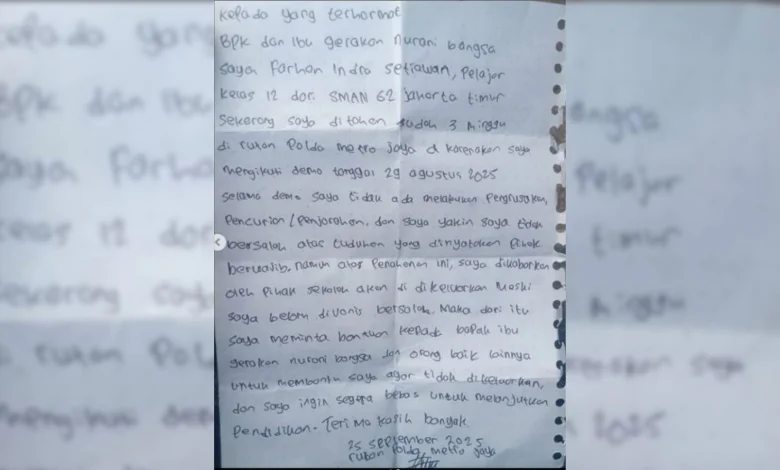 kepada yang terhormat
BPK dan Ibu gerakan nurani bangsa
saya Farhan Indra setiawan, Pelajar
kelas 12 dari SMAN 62 jakarta timur
sekarang saya di tahan sudah 3 minggu
di rutan Polda metro jaya di karenakan saya
mengikuti demo tanggal 29 agustus 2025
selama demo saya tidak ada melakukan Pengrusakan,
Pencurian/Penjarahan, dan saya yakin saya tidak
bersalah atas tuduhan yang dinyatakan Pihak
berwajib, namun atas Penahanan ini, saya dikabarkan
oleh Pihak sekolah akan di dikeluarkan Meski
saya belom divonis bersalah. Maka dari itu
saya meminta bantuan kepada bapak ibu
gerakan nurani bangsa dan orang baik lainnya
untuk membantu saya agar tidak dikeluarkan,
dan saya ingin segera bebas untuk melanjutkan
Pendidikan. Terima kasih banyak
25 September 2025
rutan Polda metro jaya